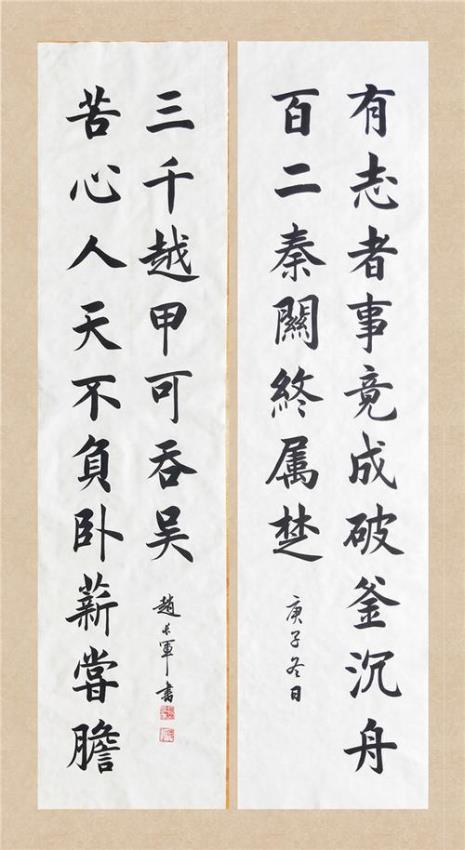 有志者事竟成破釜沉舟
百二秦關終属楚
庚子冬日
苦心人天不負卧薪嘗膽
三千越甲可吞吴
趙长軍書